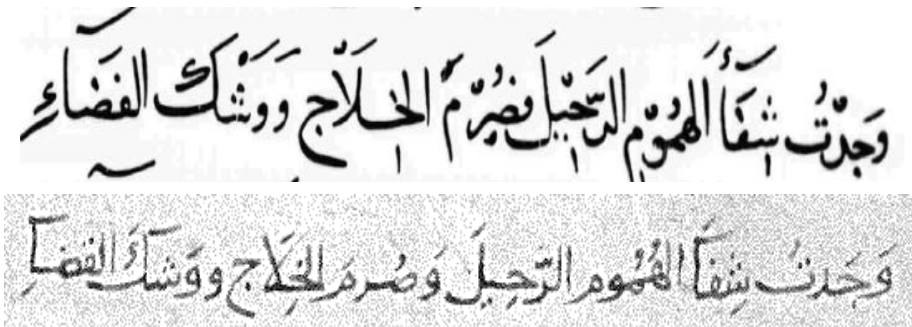 وَجَدْتُ شِفَاءَ الهُمُومِ الرَّحِيلَ فَصُرْمَ الخِلَاجِ وَوَشْكَ القَضَاءِ
وَجَدتُ شِفَاَ الهُمُومِ الرَّحِيلَ وَصُرمَ الخِلَاجِ وَوَشكَ القضا